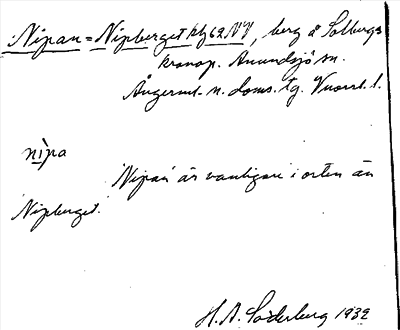 Nipan = Nipberget kbl 62 NV, berg å Solbergs
kronop. Anundsjö sn.
Ångerml. n. doms. tg. Vnorrl. l.
nìpa
Nipan är vanligare i orten än
Nipberget.
H. A. Söderberg 1932